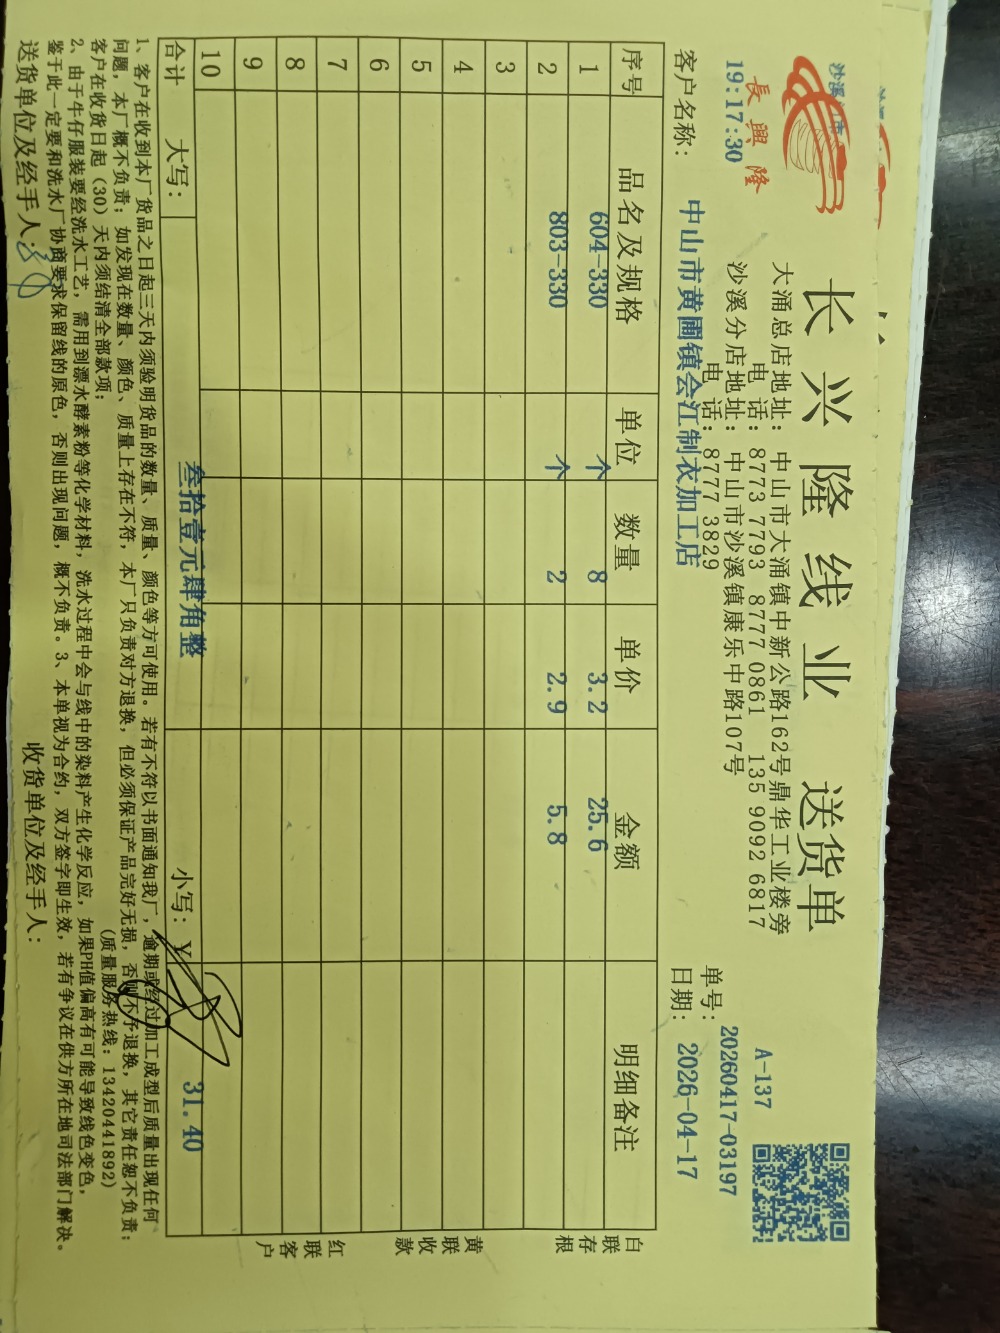 長興隆
长兴隆线业 送货单
大涌总店地址: 中山市大涌镇中新公路162号鼎华工业楼旁
电 话: 8773 7793 8777 0861 135 9092 6817
沙溪分店地址: 中山市沙溪镇康乐中路107号
电 话: 8777 3829
A-137
19:17:30
单号: 20260417-03197
客户名称: 中山市黄圃镇会江制衣加工店
日期: 2026-04-17
序号 品名及规格 单位 数量 单价 金额 明细备注
1 604-330 个 8 3.2 25.6
2 803-330 个 2 2.9 5.8
3
4
5
6
7
8
9
10
合计 大写: 叁拾壹元肆角整 小写: ¥ 31.40
白联存根
黄联收款
红联客户
1、客户在收到本厂货品之日起三天内须验明货品的数量、质量、颜色等方可使用。若有不符以书面通知我厂,逾期或经过加工成型后质量出现任何
问题,本厂概不负责;如发现在数量、颜色、质量上存在不符,本厂只负责对方退换,但必须保证产品完好无损,否则不予退换,其它责任恕不负责;
客户在收货日起(30)天内须结清全部款项; (质量服务热线: 13420441892)
2、由于牛仔服装要经洗水工艺,需用到漂水酵素粉等化学材料,洗水过程中会与线中的染料产生化学反应,如果PH值偏高有可能导致线色变色,
鉴于此一定要和洗水厂协商要求保留线的原色,否则出现问题,概不负责。3、本单视为合约,双方签字即生效,若有争议在供方所在地司法部门解决。
送货单位及经手人: 收货单位及经手人: